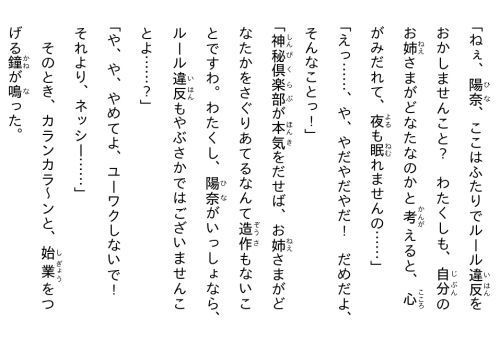 「ねぇ、陽奈、ここはふたりでルール違反を
おかしませんこと? わたくしも、自分の
お姉さまがどなたなのかと考えると、心
がみだれて、夜も眠れませんの……」
「えっ……、や、やだやだやだ! だめだよ、
そんなことっ!」
「神秘倶楽部が本気をだせば、お姉さまがど
なたかをさぐりあてるなんて造作もないこ
とですわ。わたくし、陽奈がいっしょなら、
ルール違反もやぶさかではございませんこ
とよ……?」
「や、や、やめてよ、ユーワクしないで!
それより、ネッシー……」
そのとき、カランカラ〜ンと、始業をつ
げる鐘が鳴った。